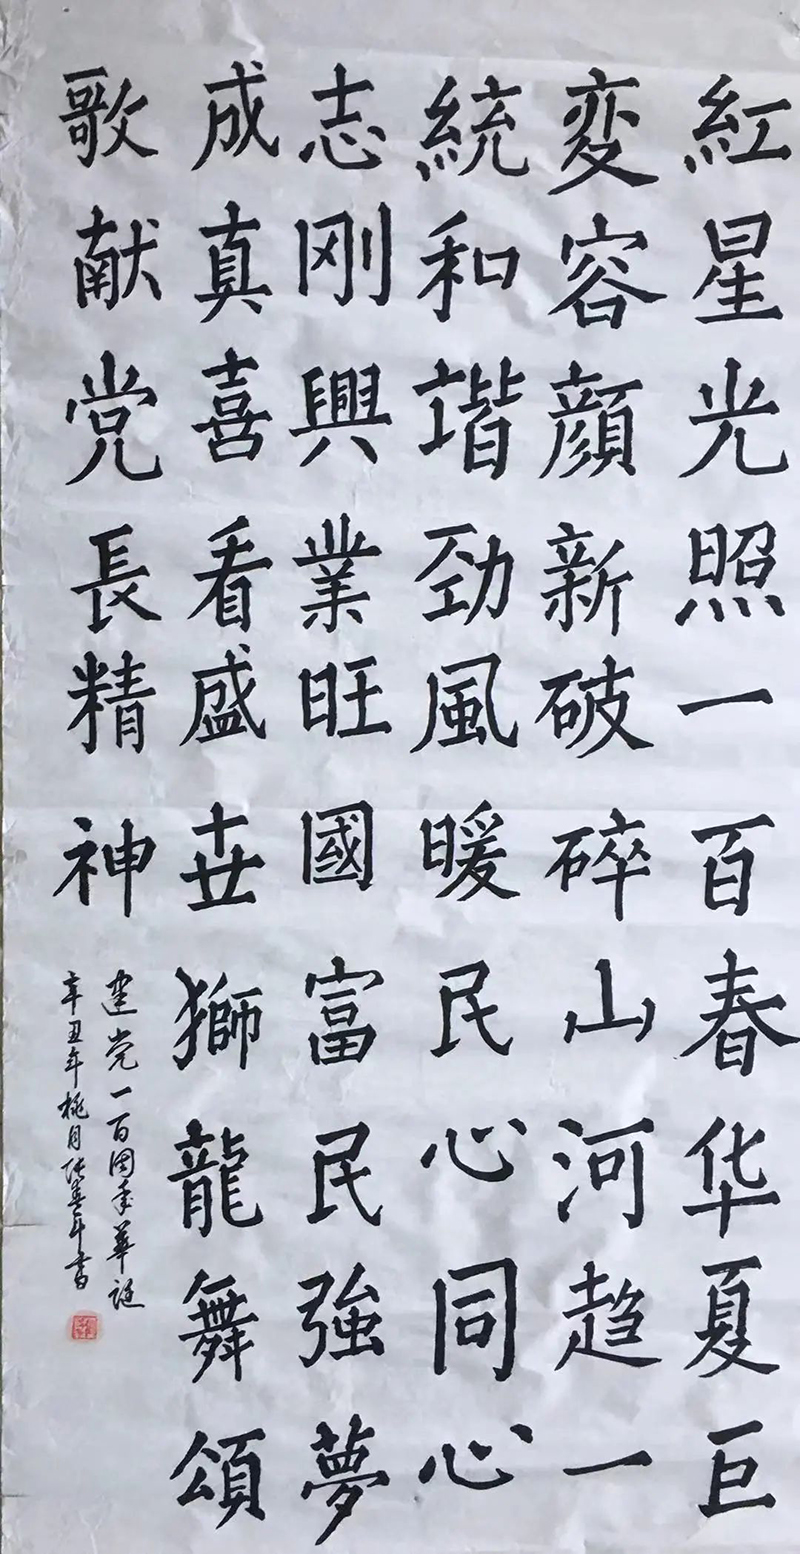 紅星光照一百春华夏巨
変容顔新破碎山河趋一
統和谐劲風暖民心同心
志刚興業旺國富民強夢
成真喜看盛世獅龍舞頌
歌献党長精神
建党一百周年華誕
辛丑年桃月